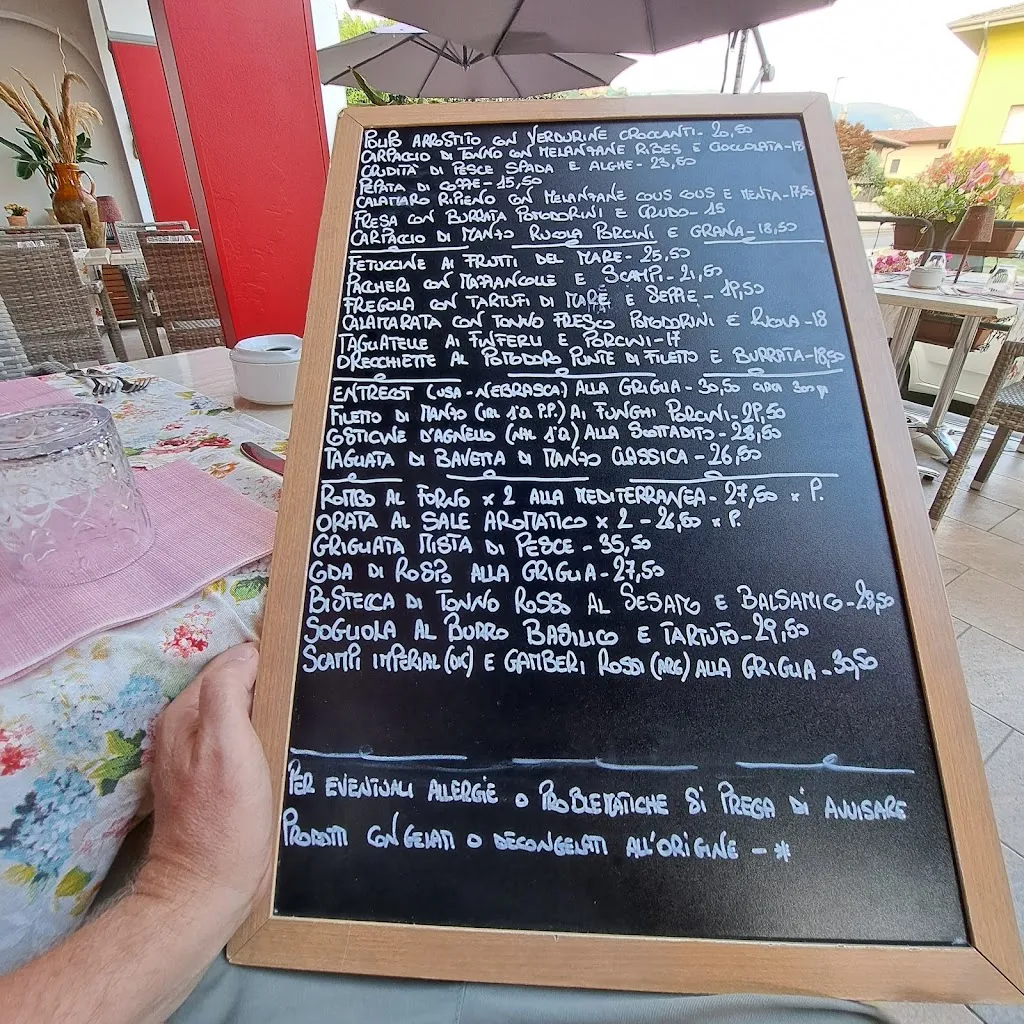 POLIPO ARROSTITO CON VERDURINE CROCCANTI - 20,50
CARPACCIO DI TONNO CON MELANZANE RIBES E CIOCCOLATA - 18
CRUDITÀ DI PESCE SPADA E ALGHE - 23,50
PEPATA DI COZZE - 15,50
CALAMARO RIPIENO CON MELANZANE COUS COUS E MENTA - 17,50
FRESA CON BURRATA POMODORINI E CRUDO - 15
CARPACCIO DI MANZO RUCOLA PORCINI E GRANA - 18,50
FETUCCINE AI FRUTTI DEL MARE - 25,50
PACCHERI CON MAZZANCOLLE E SCAMPI - 21,50
FREGOLA CON TARTUFI DI MARE E SEPPIE - 19,50
CALAMARATA CON TONNO FRESCO POMODORINI E RUCOLA - 18
TAGLIATELLE AI FINFERLI E PORCINI - 17
ORECCHIETTE AL POMODORO PUNTE DI FILETTO E BURRATA - 18,50
ENTRECOT (USA - NEBRASCA) ALLA GRIGLIA - 30,50 CIRCA 300 gr
FILETTO DI MANZO (IRL 1°Q. P.P.) AI FUNGHI PORCINI - 29,50
COSTICINE D'AGNELLO (NZL 1°Q) ALLA SCOTTADITO - 28,50
TAGLIATA DI BAVETTA DI MANZO CLASSICA - 26,50
ROMBO AL FORNO x 2 ALLA MEDITERRANEA - 27,50 x P.
ORATA AL SALE AROMATICO x 2 - 26,50 x P.
GRIGLIATA MISTA DI PESCE - 35,50
CODA DI ROSPO ALLA GRIGLIA - 27,50
BISTECCA DI TONNO ROSSO AL SESAMO E BALSAMICO - 28,50
SOGLIOLA AL BURRO BASILICO E TARTUFO - 29,50
SCAMPI IMPERIAL (DK) E GAMBERI ROSSI (ARG) ALLA GRIGLIA - 30,50
PER EVENTUALI ALLERGIE O PROBLEMATICHE SI PREGA DI AVVISARE
PRODOTTI CONGELATI O DECONGELATI ALL'ORIGINE - *